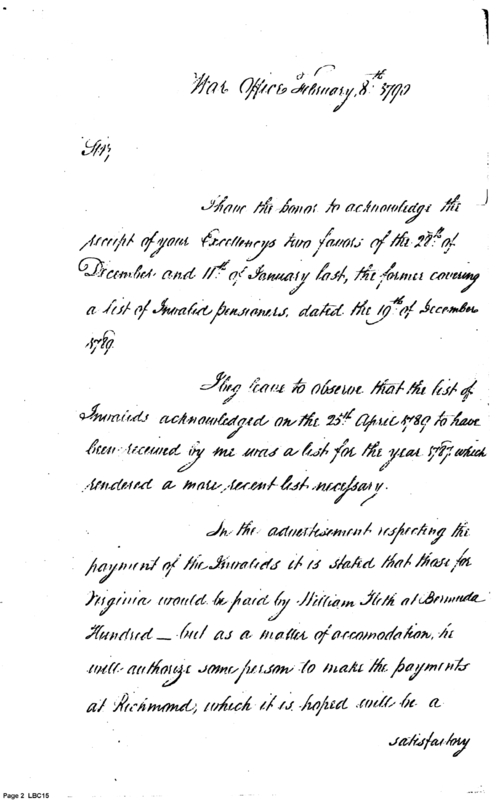 War Office February, 8th 1790
Sir,
I have the honor to acknowledge the
receipt of your Excellencys two favors of the 28th of
December and 11th of January last, the former covering
a list of Invalid pensioners, dated the 19th of December
1789.
I beg leave to observe that the list of
Invalids acknowledged on the 25th April 1789 to have
been received by me was a list for the year 1787, which
rendered a more recent list necessary.
In the advertisement respecting the
payment of the Invalids it is stated that those for
Virginia would be paid by William Heth at Bermuda
Hundred — but as a matter of accomodation, he
will authorize some person to make the payments
at Richmond, which it is hoped will be a
satisfactory
Page 2 LBC15